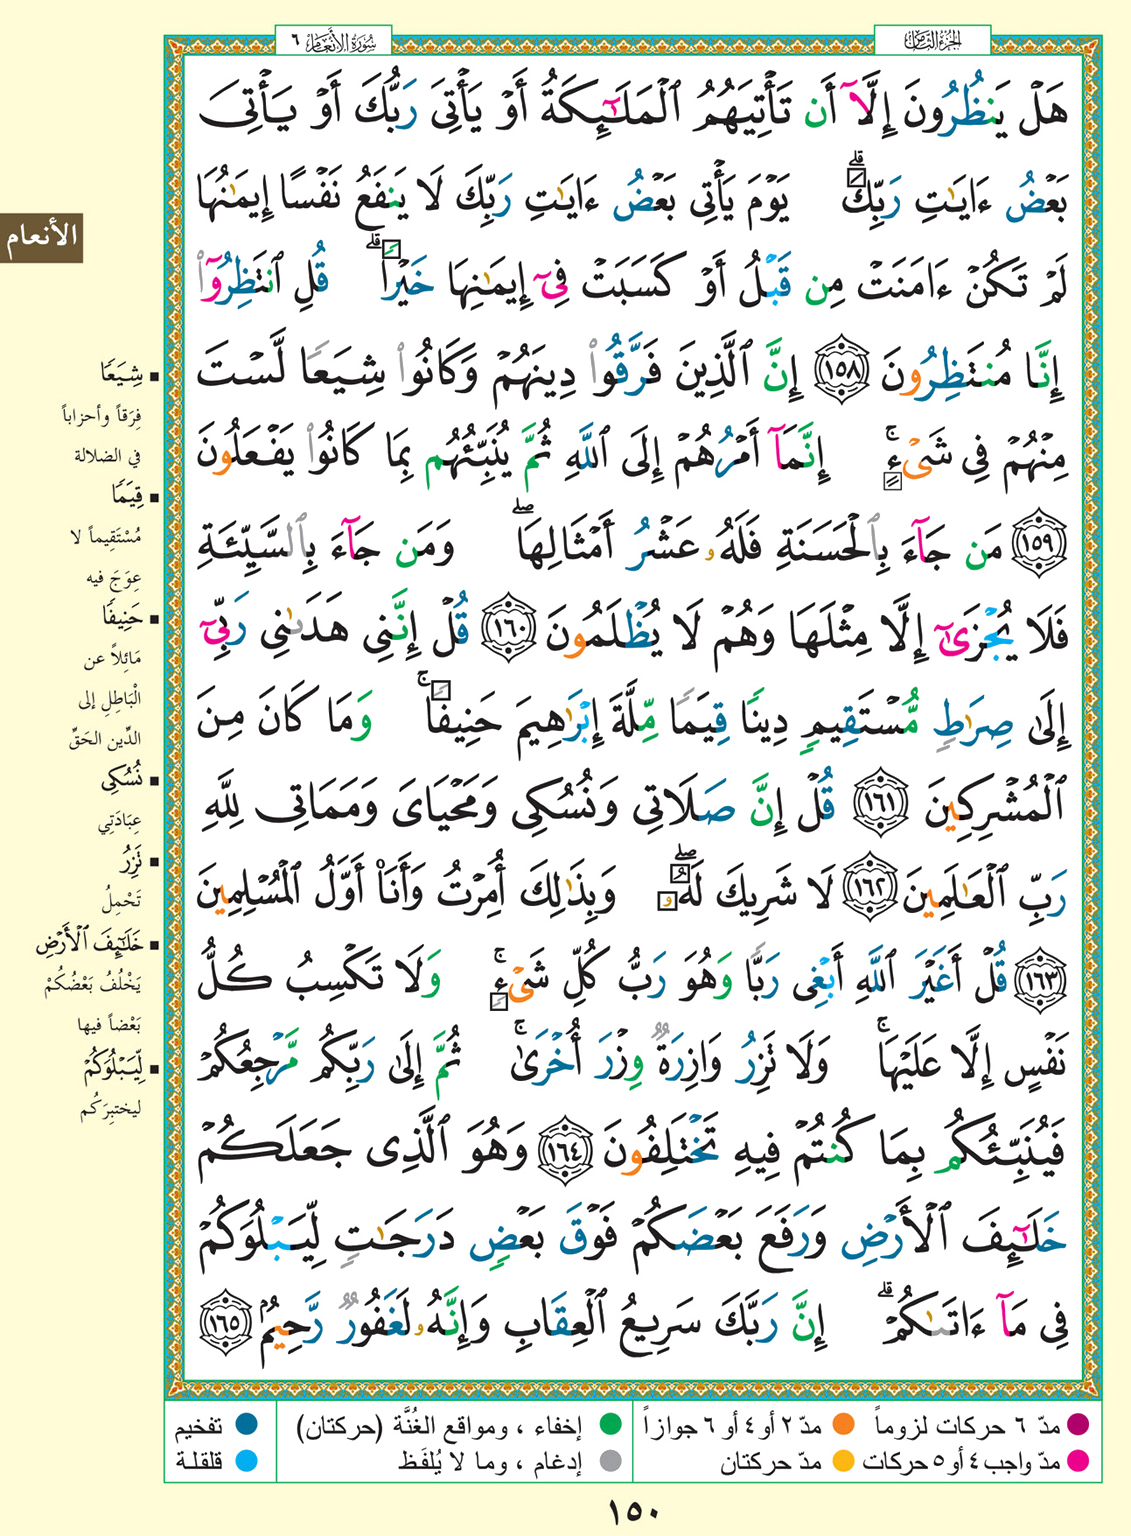 الجزء الثامن
سورة الأنعام ٦
هَلْ يَنظُرُونَ إِلَّآ أَن تَأْتِيَهُمُ ٱلْمَلَـٰٓئِكَةُ أَوْ يَأْتِىَ رَبُّكَ أَوْ يَأْتِىَ
بَعْضُ ءَايَـٰتِ رَبِّكَ ۗ يَوْمَ يَأْتِى بَعْضُ ءَايَـٰتِ رَبِّكَ لَا يَنفَعُ نَفْسًا إِيمَـٰنُهَا
لَمْ تَكُنْ ءَامَنَتْ مِن قَبْلُ أَوْ كَسَبَتْ فِىٓ إِيمَـٰنِهَا خَيْرًا ۗ قُلِ ٱنتَظِرُوٓا۟
إِنَّا مُنتَظِرُونَ ١٥٨ إِنَّ ٱلَّذِينَ فَرَّقُوا۟ دِينَهُمْ وَكَانُوا۟ شِيَعًا لَّسْتَ
مِنْهُمْ فِى شَىْءٍ ۚ إِنَّمَآ أَمْرُهُمْ إِلَى ٱللَّهِ ثُمَّ يُنَبِّئُهُم بِمَا كَانُوا۟ يَفْعَلُونَ
١٥٩ مَن جَآءَ بِٱلْحَسَنَةِ فَلَهُۥ عَشْرُ أَمْثَالِهَا ۖ وَمَن جَآءَ بِٱلسَّيِّئَةِ
فَلَا يُجْزَىٰٓ إِلَّا مِثْلَهَا وَهُمْ لَا يُظْلَمُونَ ١٦٠ قُلْ إِنَّنِى هَدَىٰنِى رَبِّىٓ
إِلَىٰ صِرَٰطٍ مُّسْتَقِيمٍ دِينًا قِيَمًا مِّلَّةَ إِبْرَٰهِيمَ حَنِيفًا ۚ وَمَا كَانَ مِنَ
ٱلْمُشْرِكِينَ ١٦١ قُلْ إِنَّ صَلَاتِى وَنُسُكِى وَمَحْيَاىَ وَمَمَاتِى لِلَّهِ
رَبِّ ٱلْعَـٰلَمِينَ ١٦٢ لَا شَرِيكَ لَهُۥ ۖ وَبِذَٰلِكَ أُمِرْتُ وَأَنَا۠ أَوَّلُ ٱلْمُسْلِمِينَ
١٦٣ قُلْ أَغَيْرَ ٱللَّهِ أَبْغِى رَبًّا وَهُوَ رَبُّ كُلِّ شَىْءٍ ۚ وَلَا تَكْسِبُ كُلُّ
نَفْسٍ إِلَّا عَلَيْهَا ۚ وَلَا تَزِرُ وَازِرَةٌ وِزْرَ أُخْرَىٰ ۚ ثُمَّ إِلَىٰ رَبِّكُم مَّرْجِعُكُمْ
فَيُنَبِّئُكُم بِمَا كُنتُمْ فِيهِ تَخْتَلِفُونَ ١٦٤ وَهُوَ ٱلَّذِى جَعَلَكُمْ
خَلَـٰٓئِفَ ٱلْأَرْضِ وَرَفَعَ بَعْضَكُمْ فَوْقَ بَعْضٍ دَرَجَـٰتٍ لِّيَبْلُوَكُمْ
فِى مَآ ءَاتَىٰكُمْ ۗ إِنَّ رَبَّكَ سَرِيعُ ٱلْعِقَابِ وَإِنَّهُۥ لَغَفُورٌ رَّحِيمٌۢ ١٦٥
الأنعام
شِيَعًا
فِرَقاً وأحزاباً
في الضلالة
قِيَمًا
مُسْتَقِيماً لا
عِوَجَ فيه
حَنِيفًا
مَائِلاً عن
الْبَاطِلِ إلى
الدِّين الحَقِّ
نُسُكِى
عِبَادَتِي
تَزِرُ
تَحْمِلُ
خَلَـٰٓئِفَ ٱلْأَرْضِ
يَخْلُفُ بَعْضُكُمْ
بَعْضاً فيها
لِّيَبْلُوَكُمْ
ليختبِرَكُم
مدّ ٦ حركات لزوماً مدّ ٢ أو ٤ أو ٦ جوازاً إخفاء ، ومواقع الغُنَّة (حركتان) تفخيم
مدّ واجب ٤ أو ٥ حركات مدّ حركتان إدغام ، وما لا يُلفَظ قلقلة
١٥٠